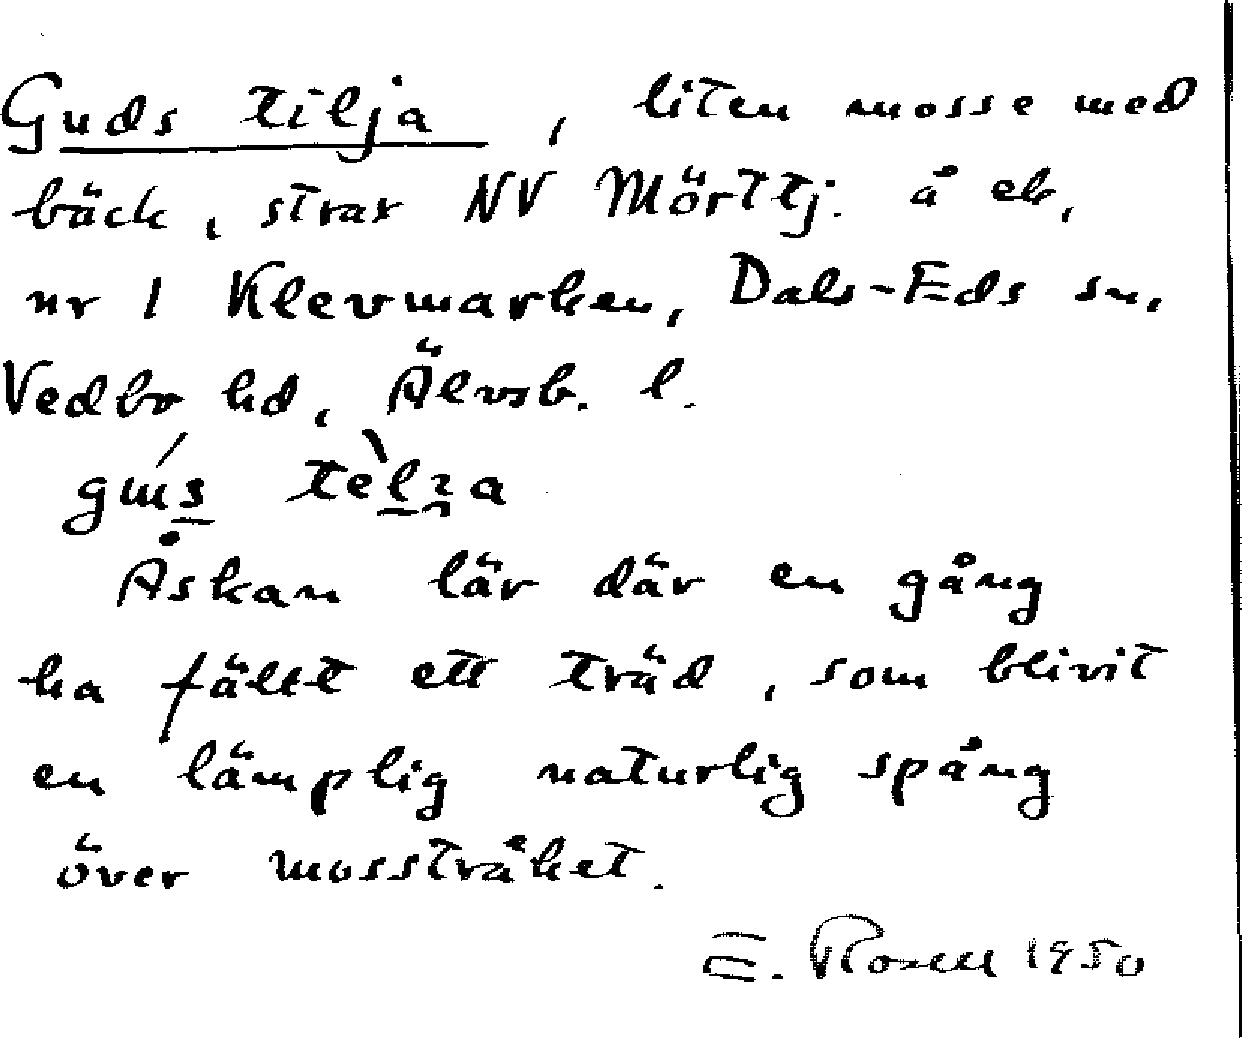 Guds tilja, liten mosse med
bäck, strax NV Mörttj. å eb.
nr 1 Klevmarken, Dals-Eds sn,
Vedbo hd, Älvsb. l.
Åskan lär där en gång
ha fällt ett träd, som blivit
en lämplig naturlig spång
över mossträket.
E. Rosell 1950